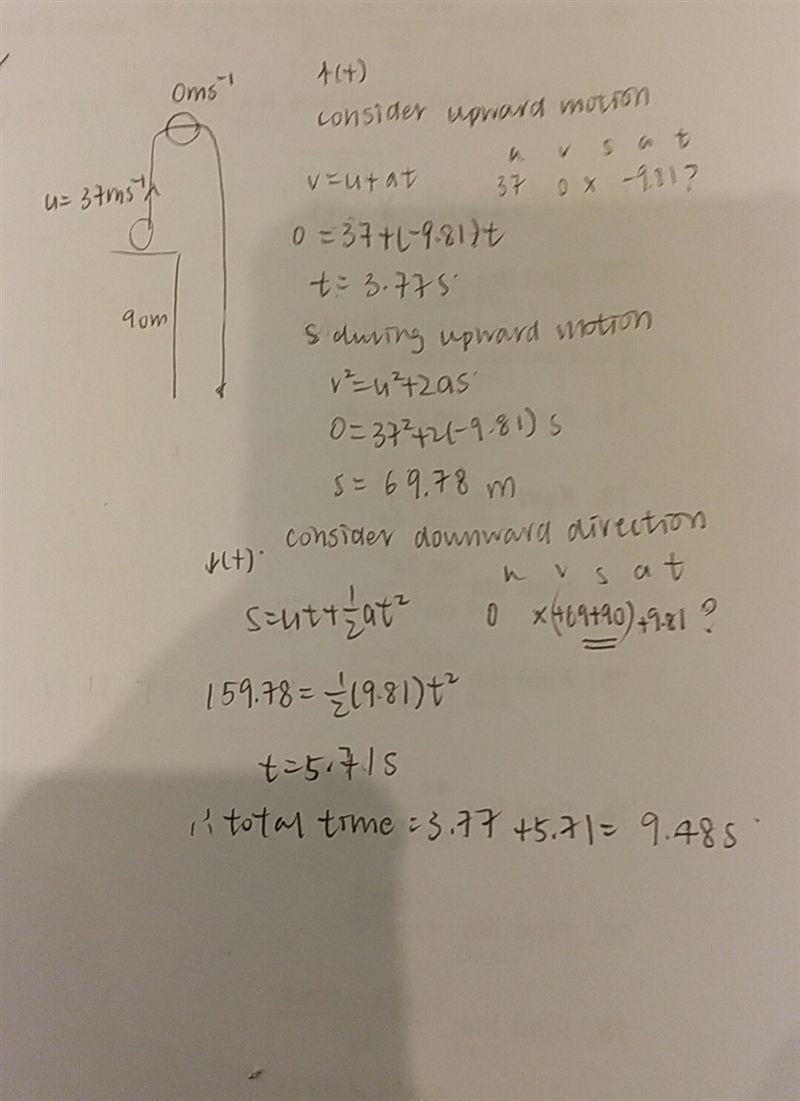 0ms⁻¹
u=37ms⁻¹
90m
↑(+)
consider upward motion
u v s a t
v=u+at 37 0 x -9.81 ?
0=37+(-9.81)t
t=3.77s
s during upward motion
v²=u²+2as
0=37²+2(-9.81)s
s=69.78 m
↓(+). consider downward direction
u v s a t
s=ut+½at² 0 x (+69+90) +9.81 ?
159.78=½(9.81)t²
t=5.71s
∴ total time=3.77+5.71=9.48s